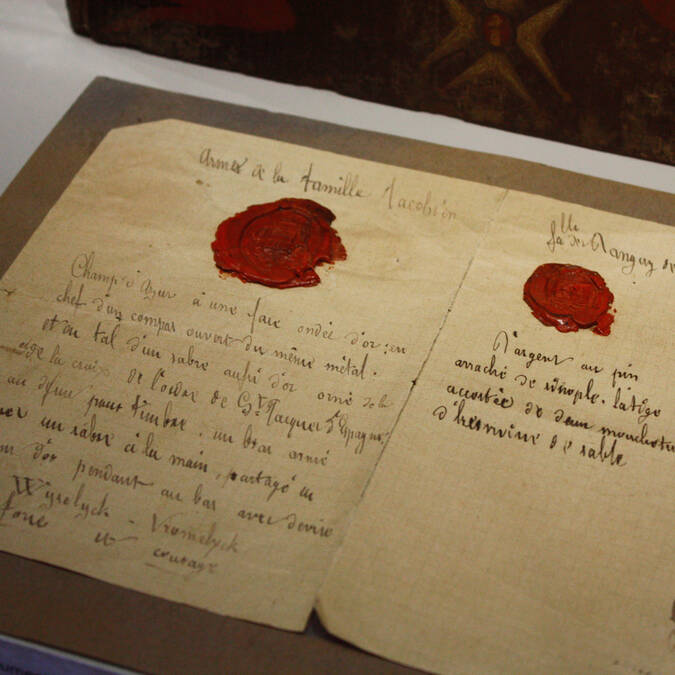 Armes de la famille Jacobsen
Champ d'azur à une face ondée d'or: en
chef d'un compas ouvert du même métal.
et en tal d'un sabre aussi d'or orné de la
la croix de l'ordre de St Jacques d'Espagne
au d'une pour timbre, un bras armé
un sabre à la main, partagé en
d'or pendant au bas avec devise
Wyselyck - Vromelyck
et courage
Mlle
D'argent au pin
arraché de sinople. la tige
accostée de deux mouchetu
d'hermine de sable